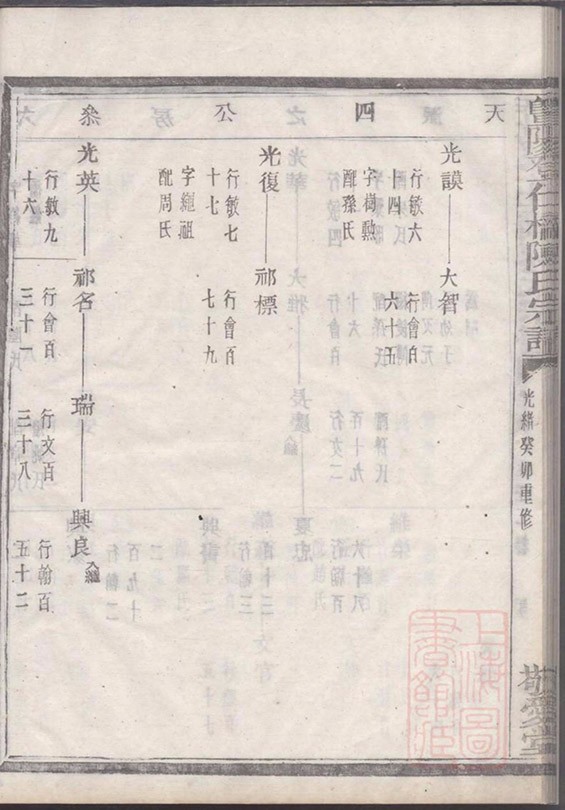 天 四 公 叅
光謨 大智
行敏六
十四
字樹勳
配孫氏
行會百
六十五
光復 祁標
行敏七
十七
字繩祖
配周氏
行會百
七十九
光英 祁名 瑞 興良
行敏九
十六
行會百
三十一
行文百
三十八
行翰百
五十二
陳氏宗譜
光緒癸卯重修
上海圖書館藏